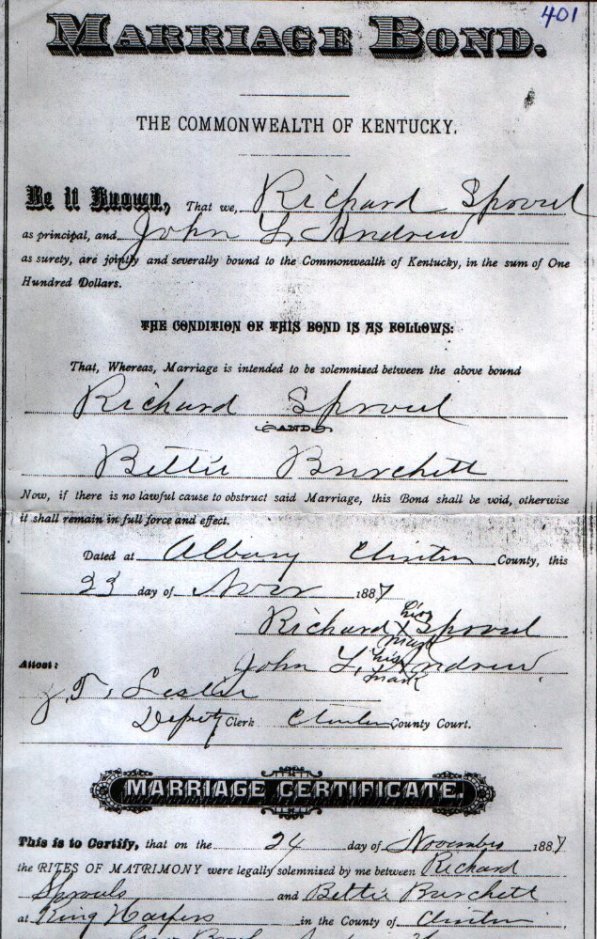 401
MARRIAGE BOND.
THE COMMONWEALTH OF KENTUCKY.
Be it Known, That we, Richard Sproul
as principal, and John L. Andrew
as surety, are jointly and severally bound to the Commonwealth of Kentucky, in the sum of One
Hundred Dollars.
THE CONDITION OF THIS BOND IS AS FOLLOWS:
That, Whereas, Marriage is intended to be solemnized between the above bound
Richard Sproul
AND
Bettie Burchett
Now, if there is no lawful cause to obstruct said Marriage, this Bond shall be void, otherwise
it shall remain in full force and effect.
Dated at Albany Clinton County, this
23 day of Novr 1887
Richard his X mark Sproul
Attest: John L. his X mark Andrew.
J. T. Lester
Deputy Clerk Clinton County Court.
MARRIAGE CERTIFICATE.
This is to Certify, that on the 24 day of November 1887
the RITES OF MATRIMONY were legally solemnized by me between Richard
Sprouls and Bettie Burchett
at King Harpers in the County of Clinton